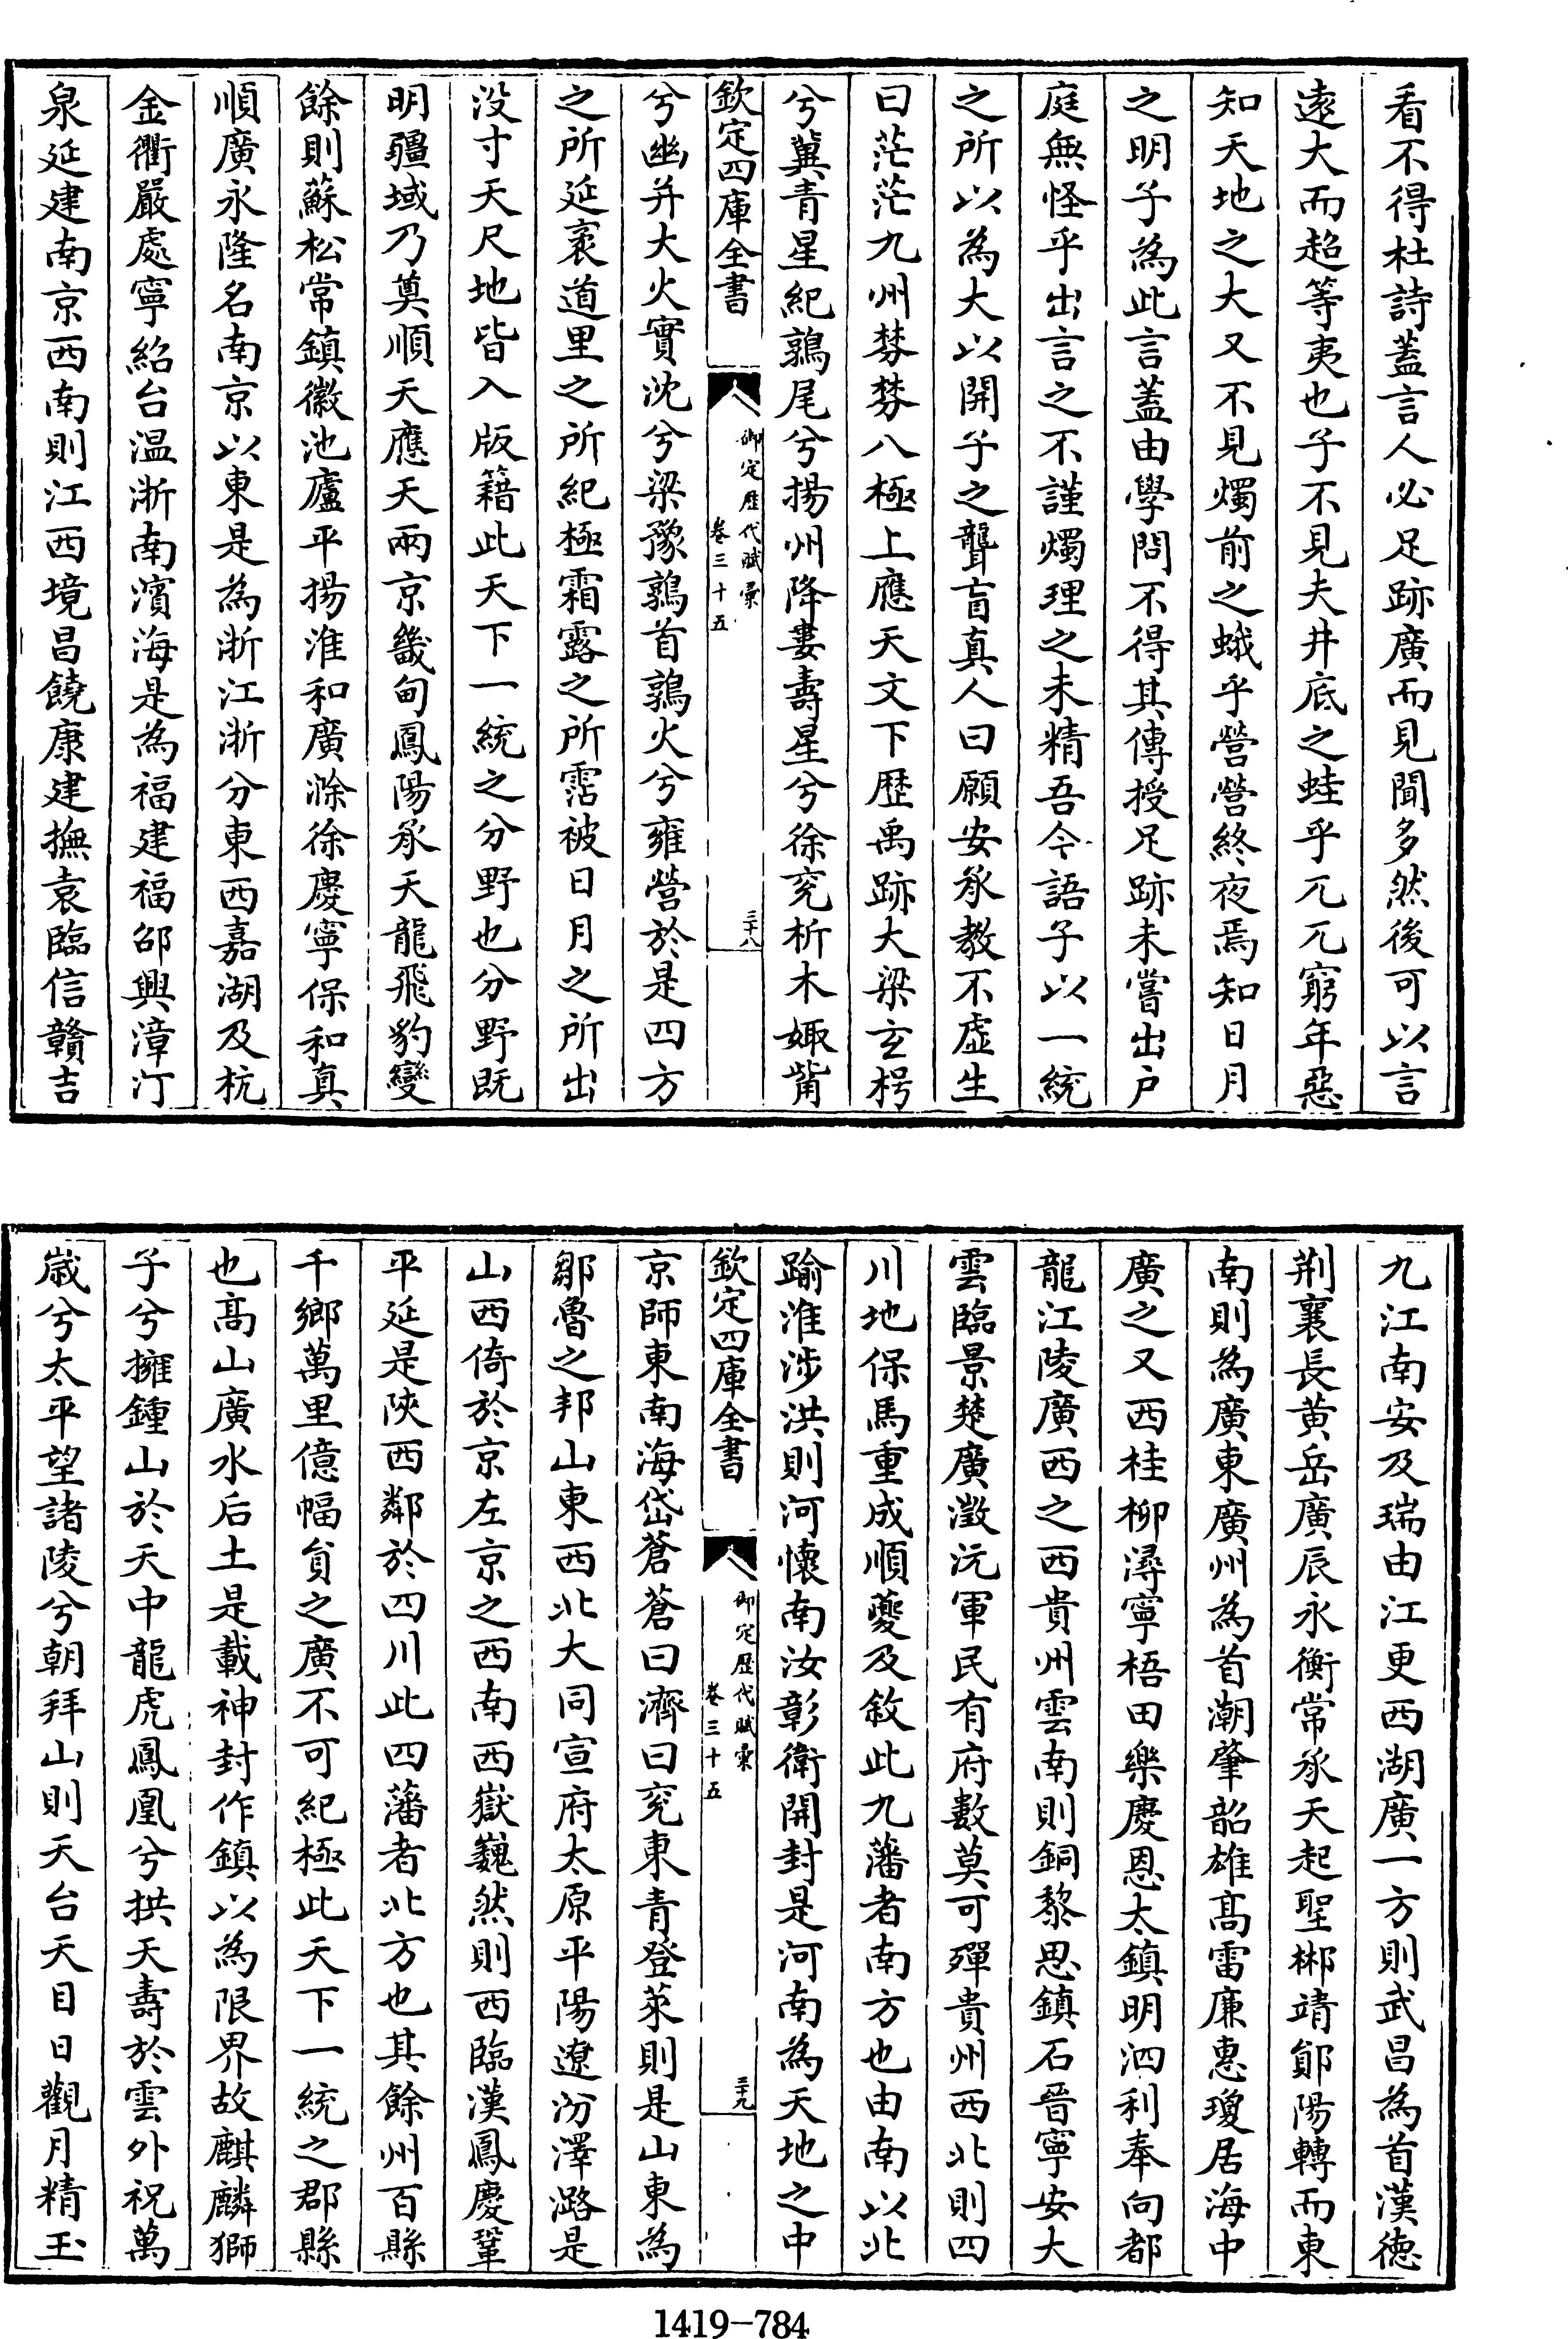 看不得杜詩蓋言人必足跡廣而見聞多然後可以言
遠大而超等夷也子不見夫井底之蛙乎兀兀窮年惡
知天地之大又不見燭前之蛾乎營營終夜焉知日月
之明子為此言蓋由學問不得其傳授足跡未嘗出户
庭無怪乎出言之不謹燭理之未精吾今語子以一統
之所以為大以開子之聾盲真人曰願安承教不虚生
曰茫茫九州棼棼八極上應天文下歴禹跡大梁玄枵
兮冀青星紀鶉尾兮揚州降婁壽星兮徐兖析木娵觜
欽定四庫全書
御定歴代賦彙
卷三十五
三十八
兮幽并大火實沈兮梁豫鶉首鶉火兮雍營於是四方
之所延袤道里之所紀極霜露之所霑被日月之所出
没寸天尺地皆入版籍此天下一統之分野也分野既
明疆域乃奠順天應天兩京畿甸鳳陽承天龍飛豹變
餘則蘇松常鎮徽池廬平揚淮和廣滁徐慶寧保和真
順廣永隆名南京以東是為浙江浙分東西嘉湖及杭
金衢嚴處寧紹台温浙南濱海是為福建福邵興漳汀
泉延建南京西南則江西境昌饒康建撫袁臨信贛吉
九江南安及瑞由江更西湖廣一方則武昌為首漢德
荆襄長黄岳廣辰永衡常承天起聖郴靖鄖陽轉而東
南則為廣東廣州為首潮肇韶雄髙雷廉惠瓊居海中
廣之又西桂柳潯寧梧田樂慶恩太鎮明泗利奉向都
龍江陵廣西之西貴州雲南則銅黎思鎮石晉寧安大
雲臨景楚廣澂沅軍民有府數莫可殫貴州西北則四
川地保馬重成順夔及敘此九藩者南方也由南以北
踰淮涉洪則河懷南汝彰衛開封是河南為天地之中
欽定四庫全書
御定歴代賦彙
卷三十五
三十九
京師東南海岱蒼蒼曰濟曰兖東青登萊則是山東為
鄒魯之邦山東西北大同宣府太原平陽遼汾澤潞是
山西倚於京左京之西南西嶽巍然則西臨漢鳳慶鞏
平延是陜西鄰於四川此四藩者北方也其餘州百縣
千鄉萬里億幅貟之廣不可紀極此天下一統之郡縣
也髙山廣水后土是載神封作鎮以為限界故麒麟獅
子兮擁鍾山於天中龍虎鳳凰兮拱天壽於雲外祝萬
嵗兮太平望諸陵兮朝拜山則天台天目日觀月精玉
1419-784